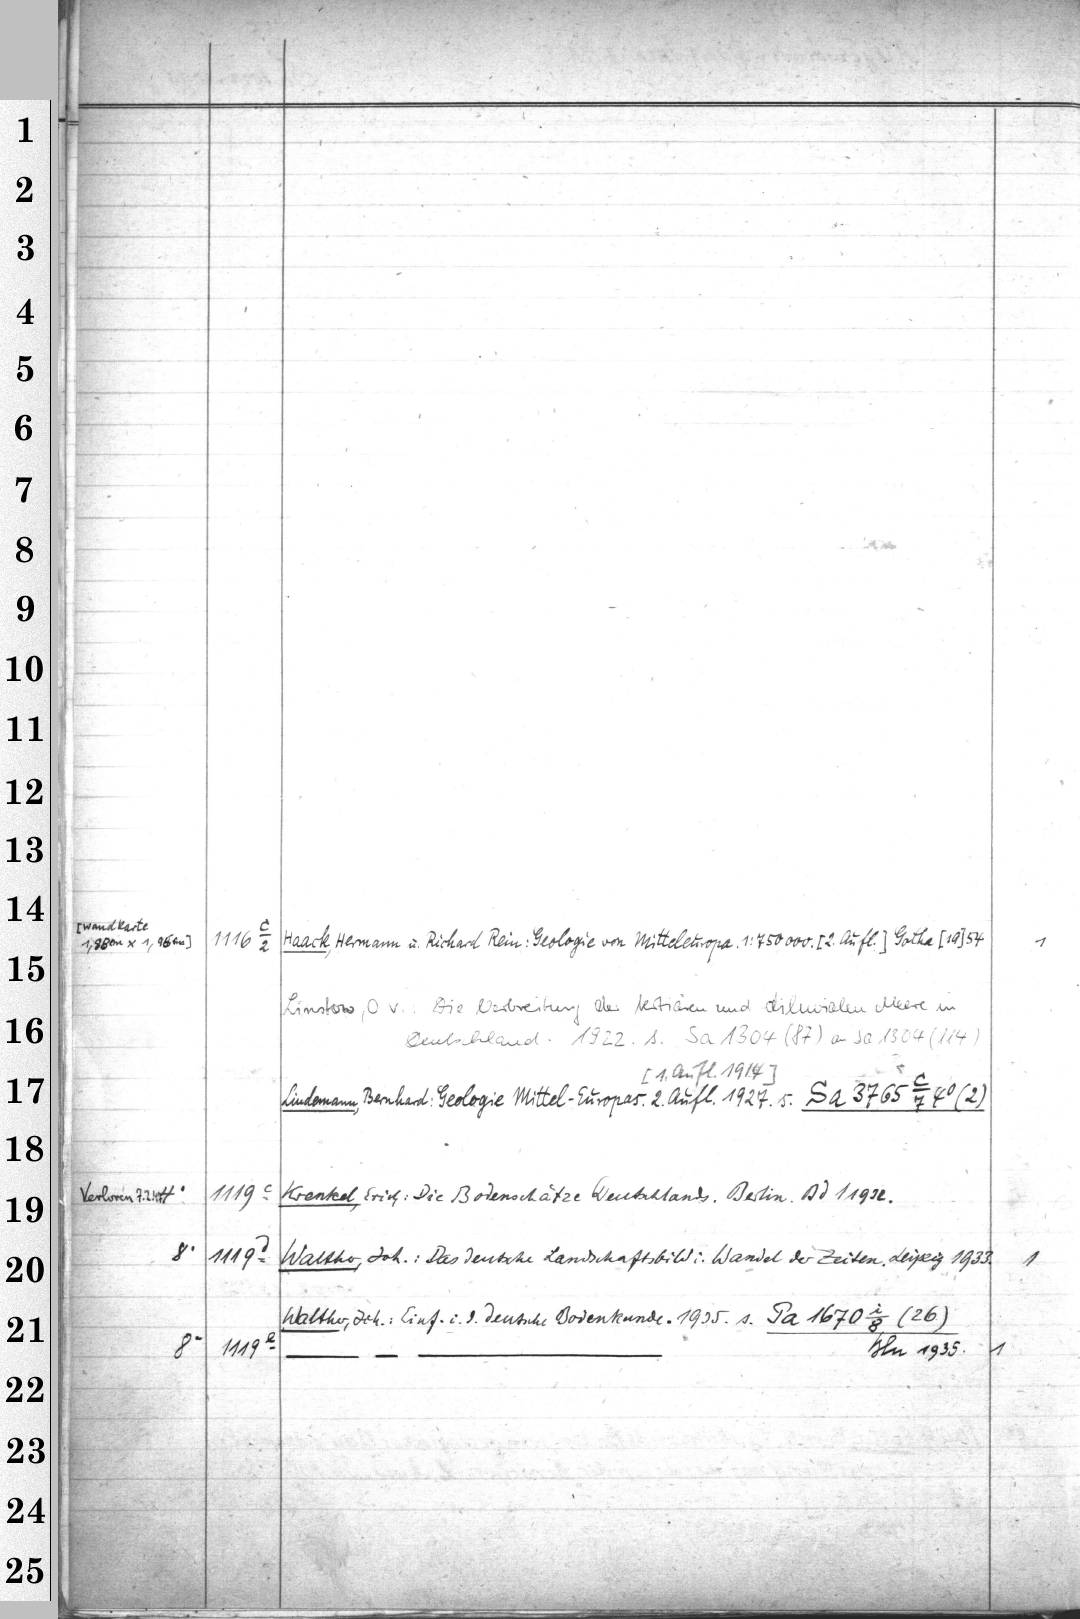 1
2
3
4
5
6
7
8
9
10
11
12
13
14
15
16
17
18
19
20
21
22
23
24
25
[Wandkarte
1,88cm x 1,96cm] 1116 c/2 Haack, Hermann u. Richard Rein: Geologie von Mitteleuropa. 1:750000. [2. Aufl.] Gotha [19]54 1
Linstow, O v.: Die Verbreitung der tertiären und diluvialen Meere in
Deutschland. 1922. s. Sa 1304 (87) Sa 1304 (114)
[1. Aufl. 1914]
Lindemann, Bernhard: Geologie Mittel-Europas. 2. Aufl. 1927. s. Sa 3765 c/7 4° (2)
Verloren 1119 c Krenkel, Erich: Die Bodenschätze Deutschlands. Berlin. Bd 1 1932.
8° 1119 d Walther, Joh.: Das deutsche Landschaftsbild i. Wandel der Zeiten. Leipzig 1933. 1
Walther, Joh.: Einf. i. d. deutsche Bodenkunde. 1935. s. Ta 1670 i/8 (26)
8° 1119 e — — — Bln 1935. 1